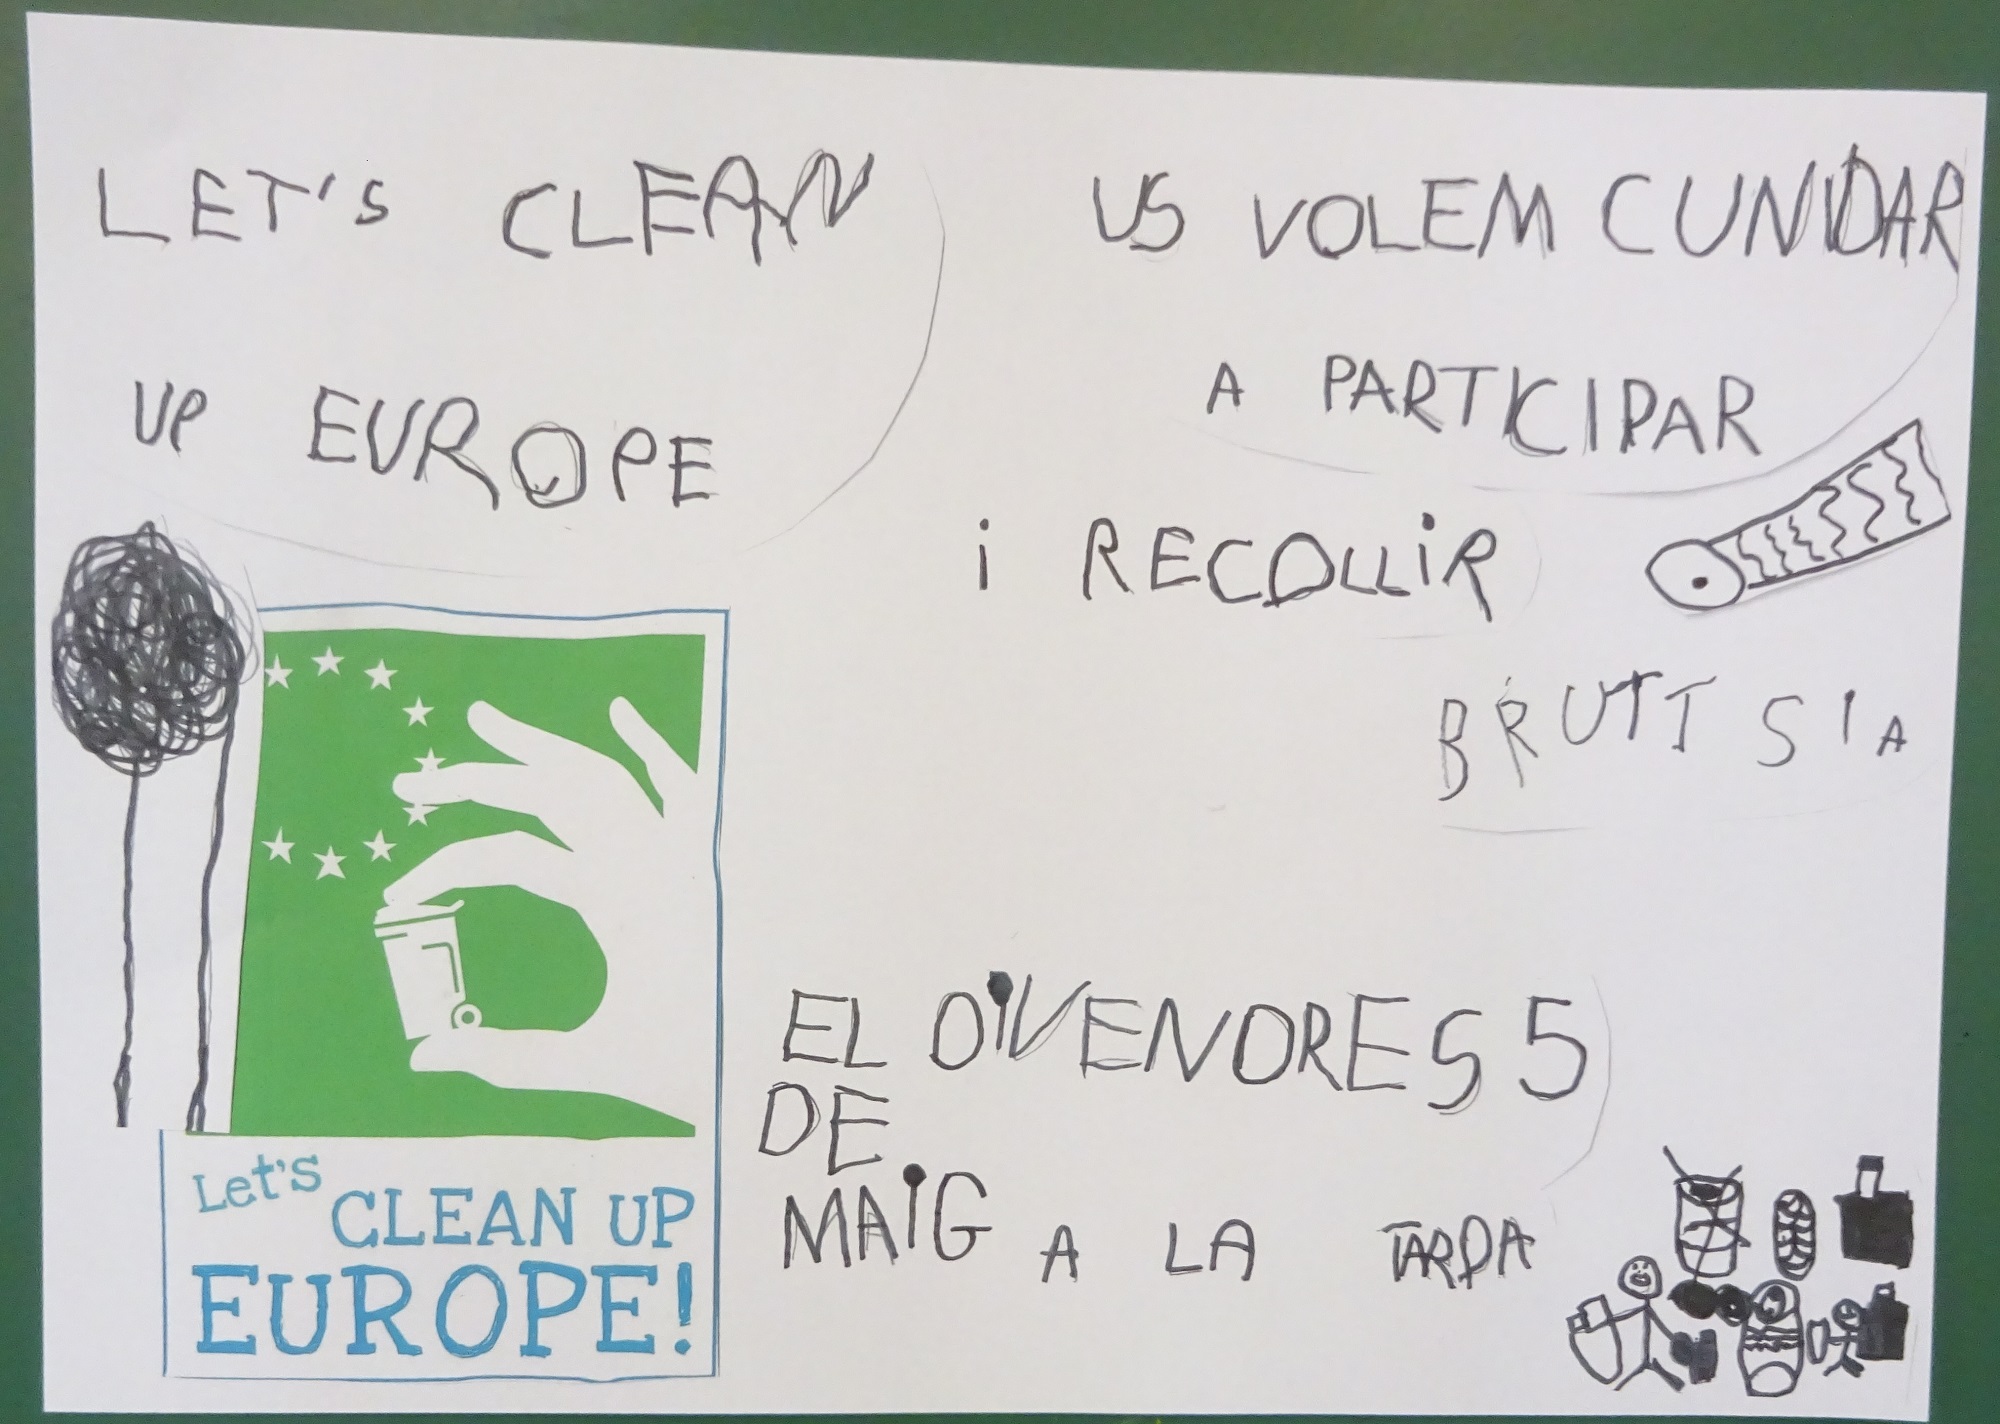 LET'S CLEAN
UP EUROPE
US VOLEM CUNVIDAR
A PARTICIPAR
i RECOLLiR
BRUTTSIA
EL DiVENDRES 5
DE
MAiG A LA TARDA
Let's
CLEAN UP
EUROPE!